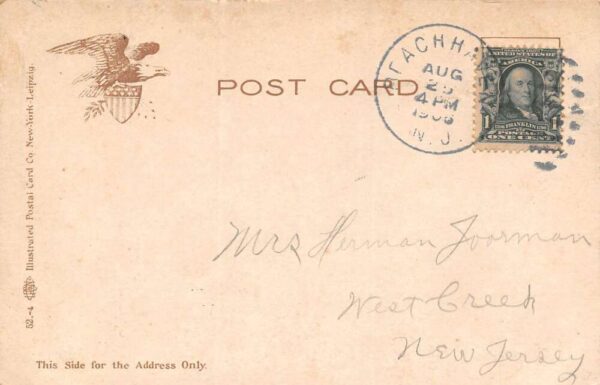 POST CARD
BEACH HA
AUG
25
4 PM
1906
N.J.
UNITED STATES OF
AMERICA
1 FRANKLIN 1
POSTAGE
ONE CENT
Mrs Herman Joorman
West Creek
New Jersey
This Side for the Address Only.
52.-4 Illustrated Postal Card Co New-York-Leipzig.